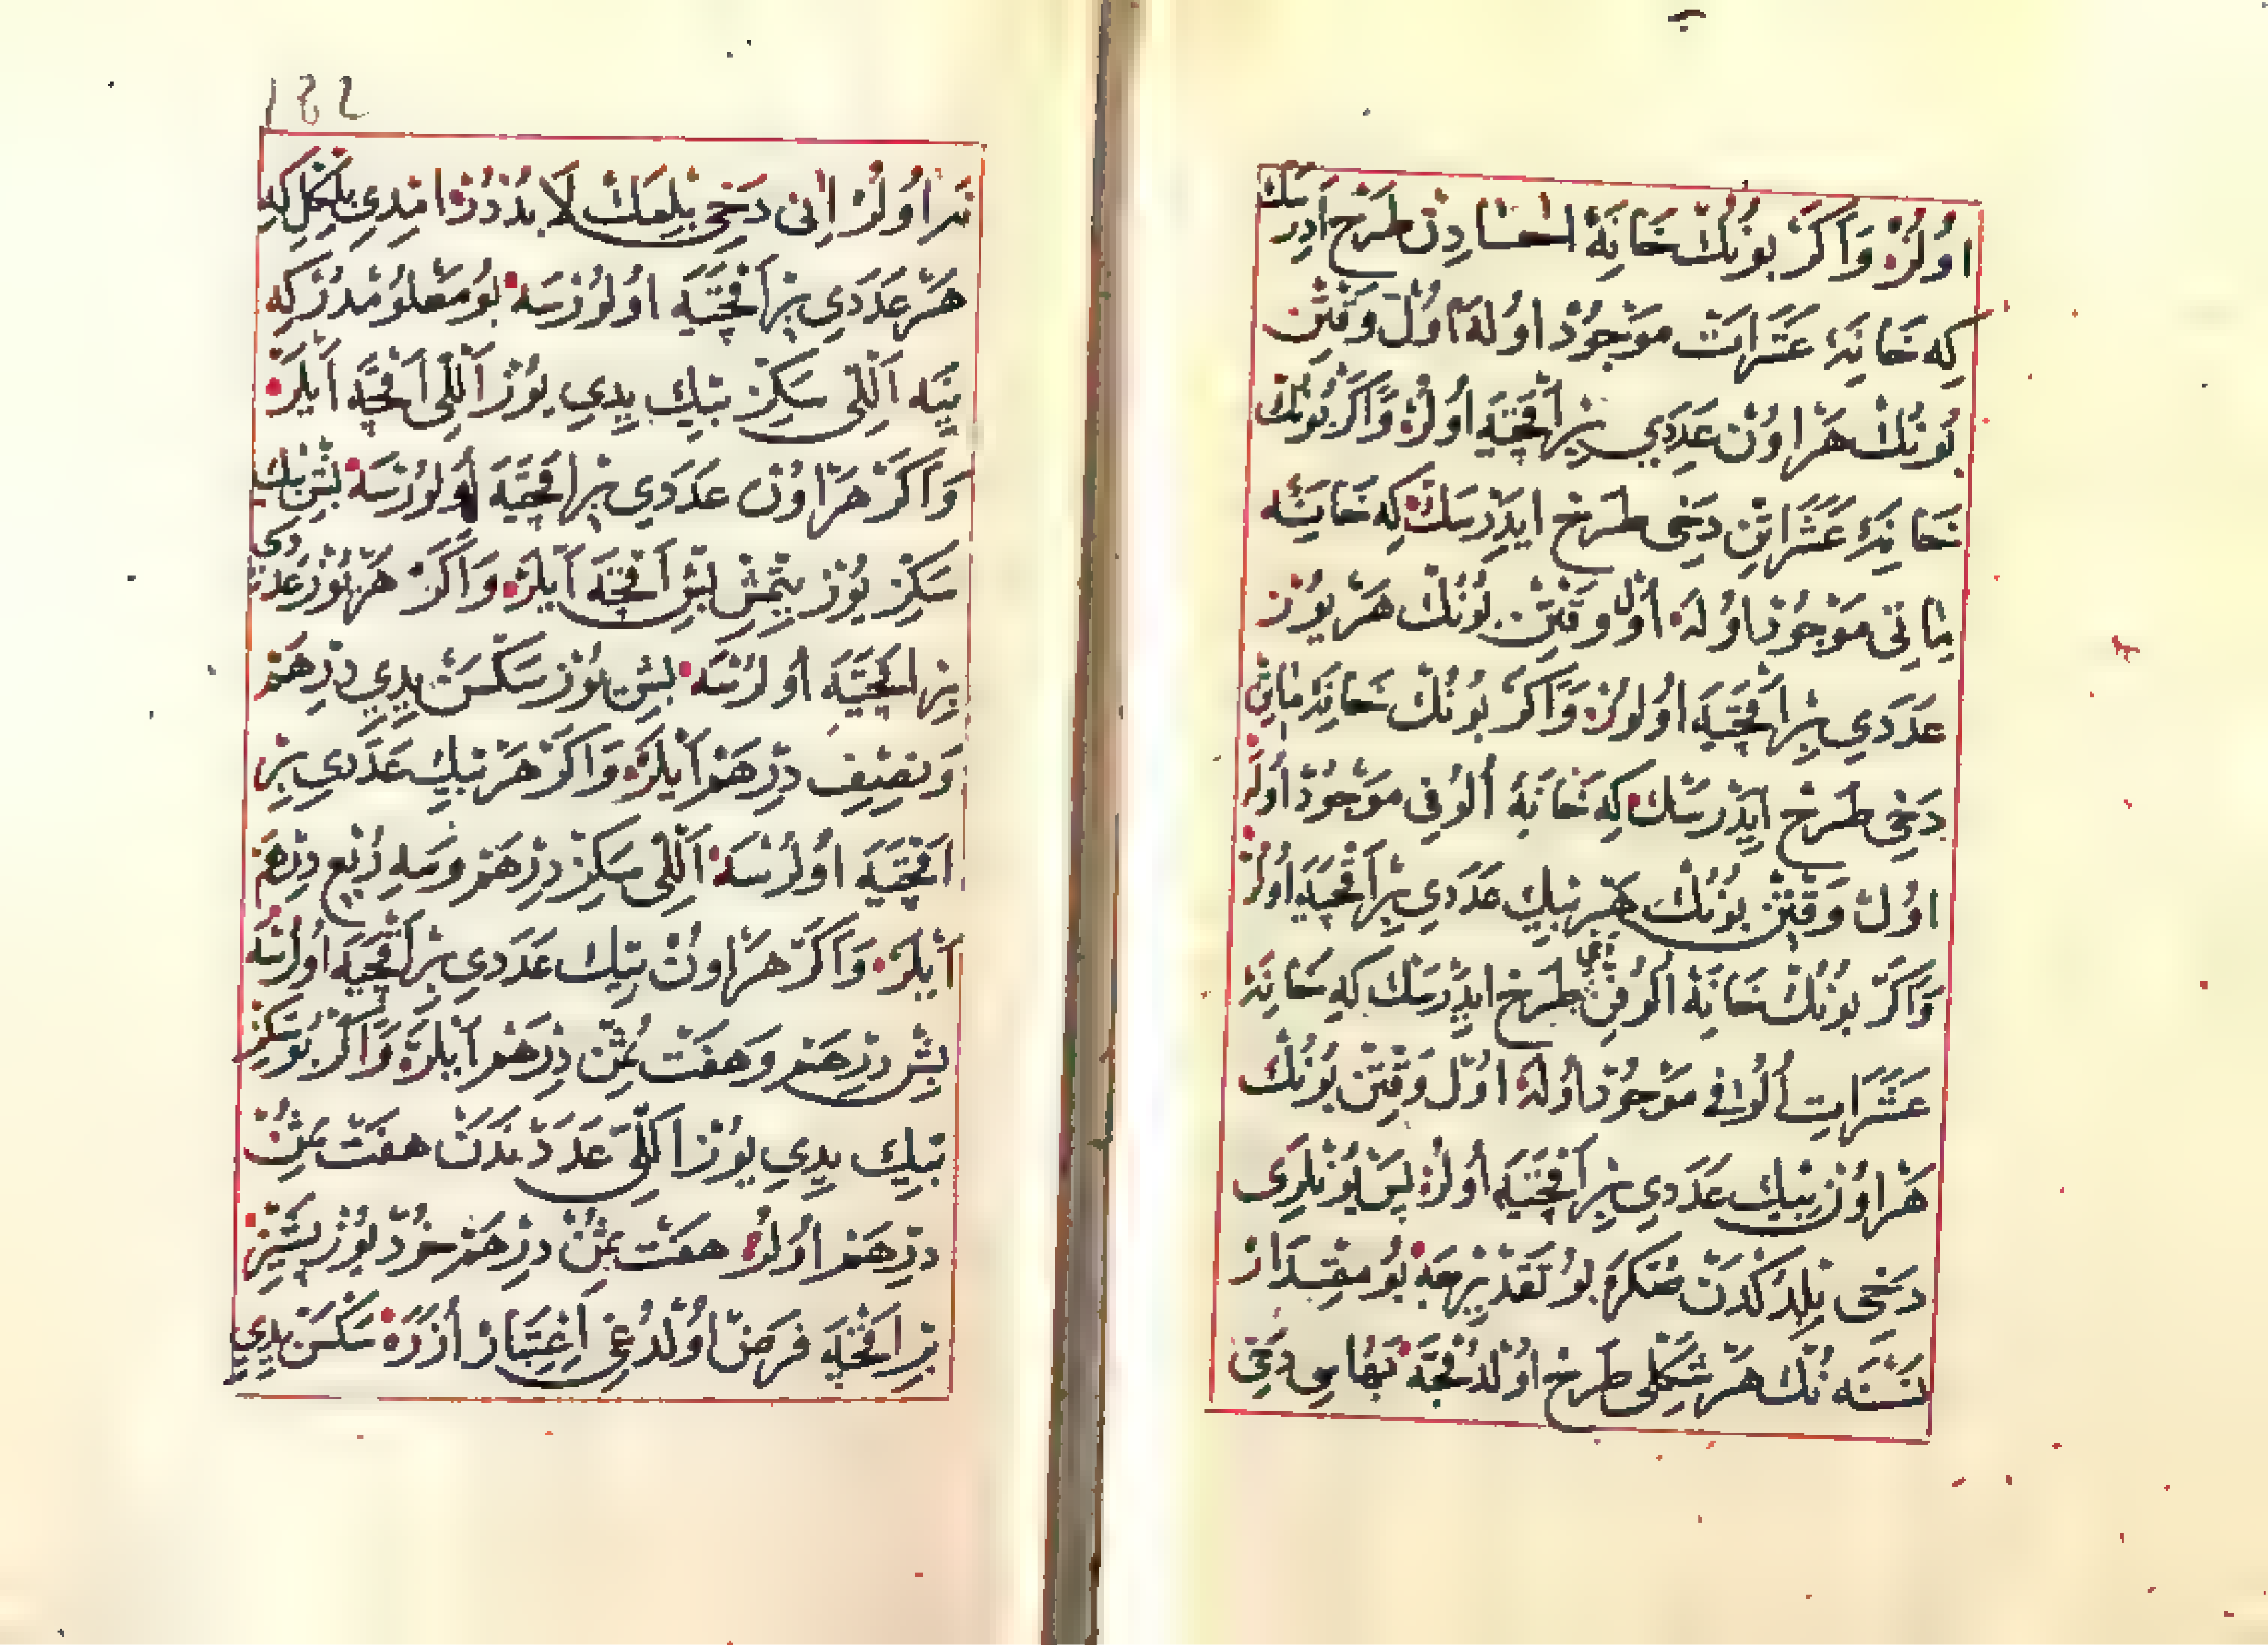 اولُرْ وَاَكَرْ بُونُكْ خَانَهٔ اٰحَادِنْ طَرْحْ اِدَرْسَكْ
كِه خَانَهٔ عَشَرَاتْ مَوْجُودْ اولَه اُولْ وَقْتِنْ
بُونُكْ هَرْ اوُنْ عَدَدِي بِرْ اَقْچَيَه اُولُرْ وَاَكَرْ بُونُكْ
خَانَهٔ عَشَرَاتِنْ دَخِى طَرْحْ ايدَرْسَكْ كِه خَانَهٔ
مِاٰتِى مَوْجُودْ اوُلَه اُولْ وَقْتِنْ بُونُكْ هَرْ يُوزْ
عَدَدِي بِرْ اَقْچَيَه اوُلوُرْ وَاَكَرْ بُونُكْ خَانَهٔ مِاٰتِنْ
دَخِى طَرْحْ ايدَرْسَكْ كِه خَانَهٔ اُلوُفِى مَوْجُودْ اُولَه
اوُلْ وَقْتِنْ بُونُكْ هَرْ بِيكْ عَدَدِي بِرْ اَقْچَيَه اوُلُرْ
وَاَكَرْ بُونُكْ خَانَهٔ اُلوُفِنْ دَخِى طَرْحْ ايدَرْسَكْ كِه خَانَهٔ
عَشَرَاتِ اُلُوفِى مَوْجُودْ اُولَه اوُلْ وَقْتِنْ بُونُكْ
هَرْ اوُنْ بِيكْ عَدَدِي بِرْ اَقْچَيَه اُولُرْ پَسْ بُونْلَرِى
دَخِى بِلْدُكْدَنْ صُكْرَه بُو نَقْدِيرْجَه بُو مِقْدَارْ
نَسْنَه نُكْ هَرْ شَكْلِى طَرْحْ اوُلْدُقْچَه بَهَاسِى دَخِى
نَه اوُلُرْ اِنِى دَخِى بِلْمَكْ لَا بُدْدُرْ اِمْدِي بِلْكِلْ كِه
هَرْ عَدَدِي بِرْ اَقْچَيَه اوُلوُرْسَه بُو مَعْلُومْدُرْ كِه
يِنَه اَللِّى سَكِزْ بِيكْ يِدِي يُوزْ اَللِّى اَقْچَه اَيْلَرْ
وَاَكَرْ هَرْ اوُنْ عَدَدِي بِرْ اَقْچَيَه اُولوُرْسَه بَشْ بِيكْ
سَكِزْ يُوزْ يِتْمِشْ بَشْ اَقْچَه اَيْلَرْ وَاَكَرْ هَرْ يُوزْ عَدَدِي
بِرْ اَقْچَيَه اُولُرْسَه بَشْ يُوزْ سَكْسَنْ يِدِي دِرْهَمْ
وَنِصِيفْ دِرْهَمْ اَيْلَرْ وَاَكَرْ هَرْ بِيكْ عَدَدِي بِرْ
اَقْچَيَه اوُلُرْسَه اَللِّى سَكِزْ دِرْهَمْ وَسَه رُبْعِ دِرْهَمْ
اَيْلَرْ وَاَكَرْ هَرْ اوُنْ بِيكْ عَدَدِي بِرْ اَقْچَيَه اوُلُرْسَه
بَشْ دِرْهَمْ وَهَفْتْ ثُمْنْ دِرْهَمْ اَيْلَرْ وَاَكَرْ بُو سَكِزْ
بِيكْ يِدِي يُوزْ اَللِّى عَدَدْ بَدَنْ هَفْتْ ثُمْنْ
دِرْهَمْ اوُلُرْ هَفْتْ ثُمْنْ دِرْهَمْ خُودْ يُوزْ
بِرْ اَقْچَه فَرْضْ اوُلْدُغِى اِعْتِبَارْ اُزْرَه سَكْسَنْ يِدِي